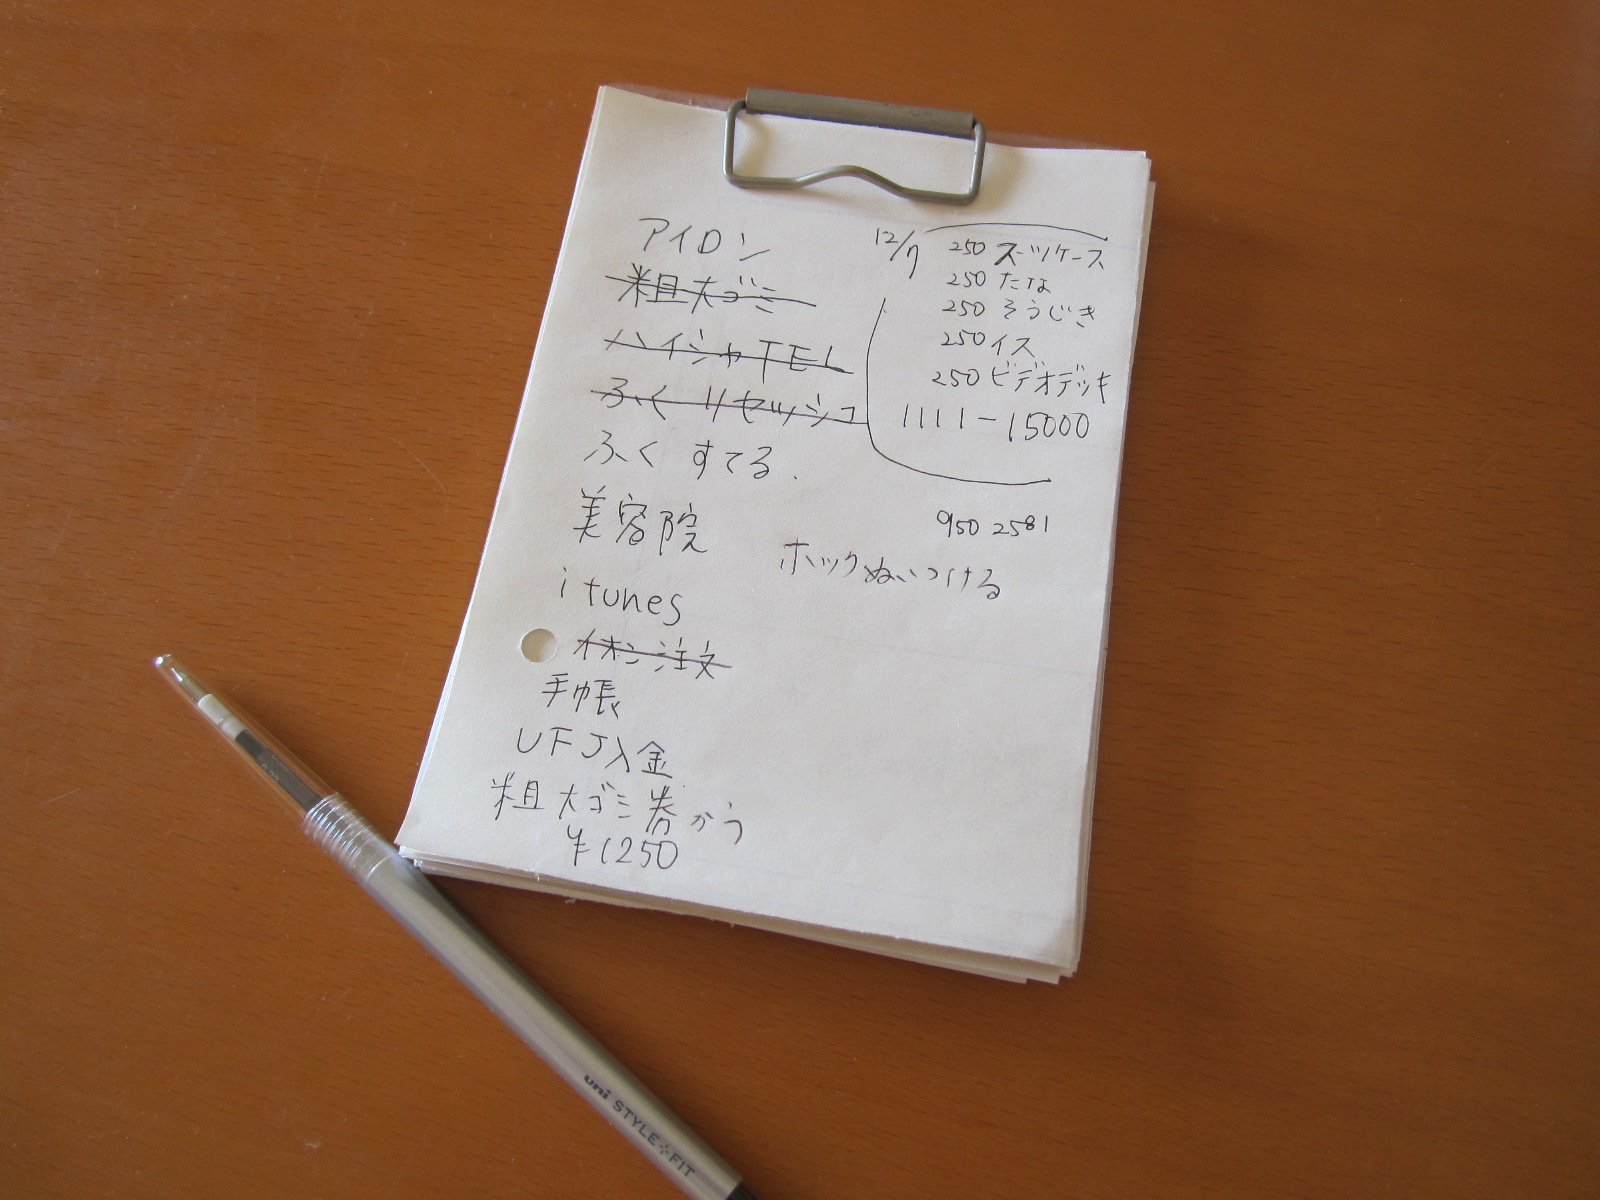 アイロン
粗大ゴミ
ハイシャTEL
ふく リセッシュ
ふく すてる.
美容院
itunes
イオン注文
手帳
UFJ入金
粗大ゴミ券かう
¥1250
12/7
250 スーツケース
250 たな
250 そうじき
250 イス
250 ビデオデッキ
1111-15000
950 2581
ホックぬいつける
uni STYLE FIT